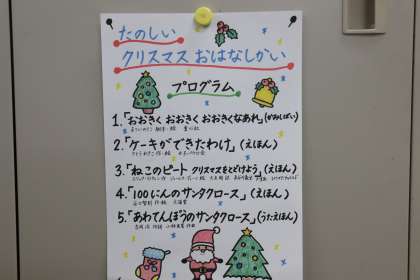 たのしい
クリスマス おはなしかい
プログラム
1.「おおきく おおきく おおきくなあれ」(かみしばい)
2.「ケーキができたわけ」(えほん)
3.「ねこのピート クリスマスをとどけよう」(えほん)
4.「100にんのサンタクロース」(えほん)
5.「あわてんぼうのサンタクロース」(うたえほん)